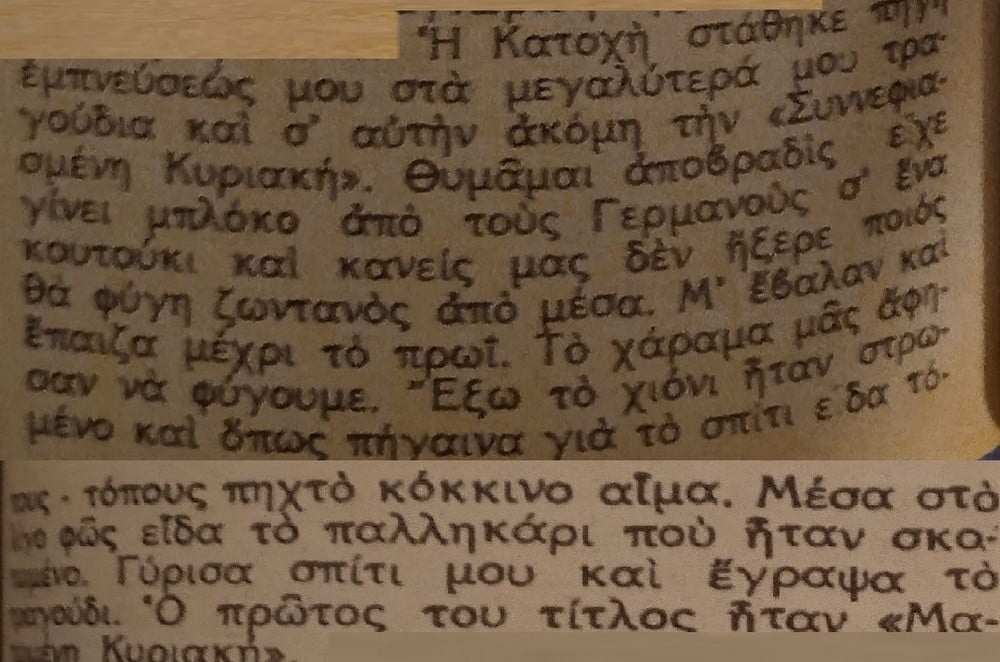 Ἡ Κατοχὴ στάθηκε πηγὴ
ἐμπνεύσεώς μου στὰ μεγαλύτερά μου τρα-
γούδια καὶ σ' αὐτὴν ἀκόμη τὴν «Συννεφια-
σμένη Κυριακή». Θυμᾶμαι ἀποβραδὶς εἶχε
γίνει μπλόκο ἀπὸ τοὺς Γερμανοὺς σ' ἕνα
κουτούκι καὶ κανείς μας δὲν ἤξερε ποιός
θὰ φύγη ζωντανὸς ἀπὸ μέσα. Μ' ἔβαλαν καὶ
ἔπαιζα μέχρι τὸ πρωΐ. Τὸ χάραμα μᾶς ἄφη-
σαν νὰ φύγουμε. Ἔξω τὸ χιόνι ἦταν στρω-
μένο καὶ ὅπως πήγαινα γιὰ τὸ σπίτι εἶδα τό-
πους - τόπους πηχτὸ κόκκινο αἷμα. Μέσα στὸ
φῶς εἶδα τὸ παλληκάρι ποὺ ἦταν σκο-
τωμένο. Γύρισα σπίτι μου καὶ ἔγραψα τὸ
τραγούδι. Ὁ πρῶτος του τίτλος ἦταν «Μα-
Κυριακή».